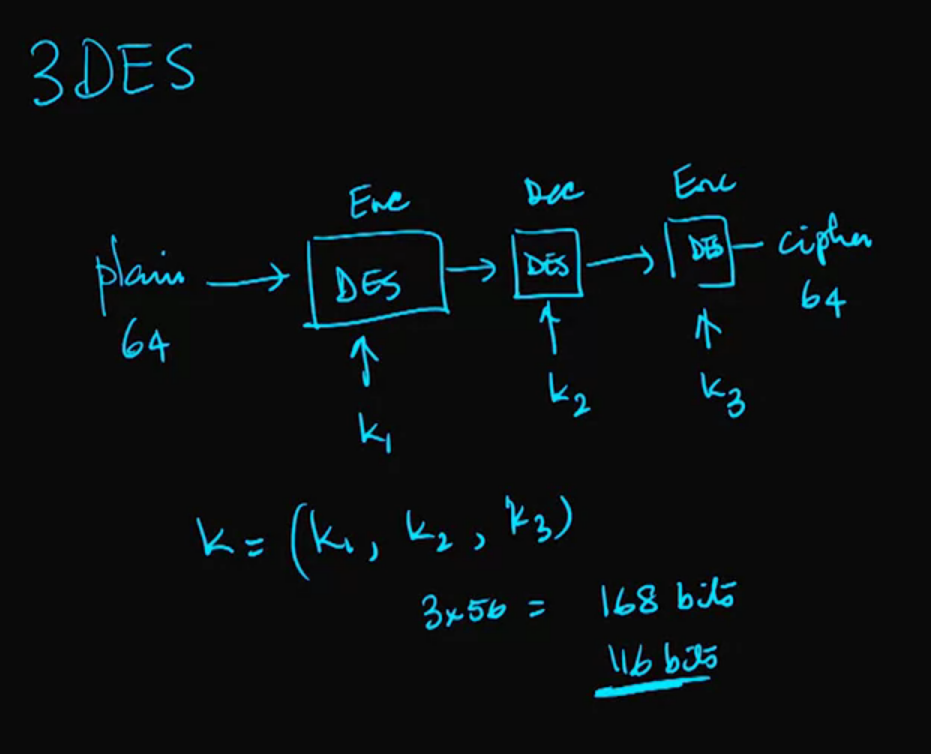 3DES
Enc Dec Enc
plain → DES → DES → DES – cipher
64 ↑ ↑ ↑ 64
k₁ k₂ k₃
k = (k₁, k₂, k₃)
3x56 = 168 bits
116 bits